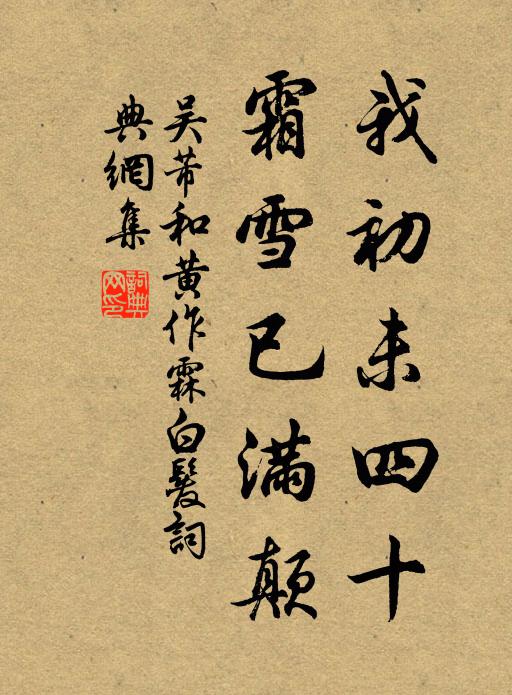 我初未四十
霜雪已满颠
吴芾和黄作霖白髮詞
典網集
詞典网印